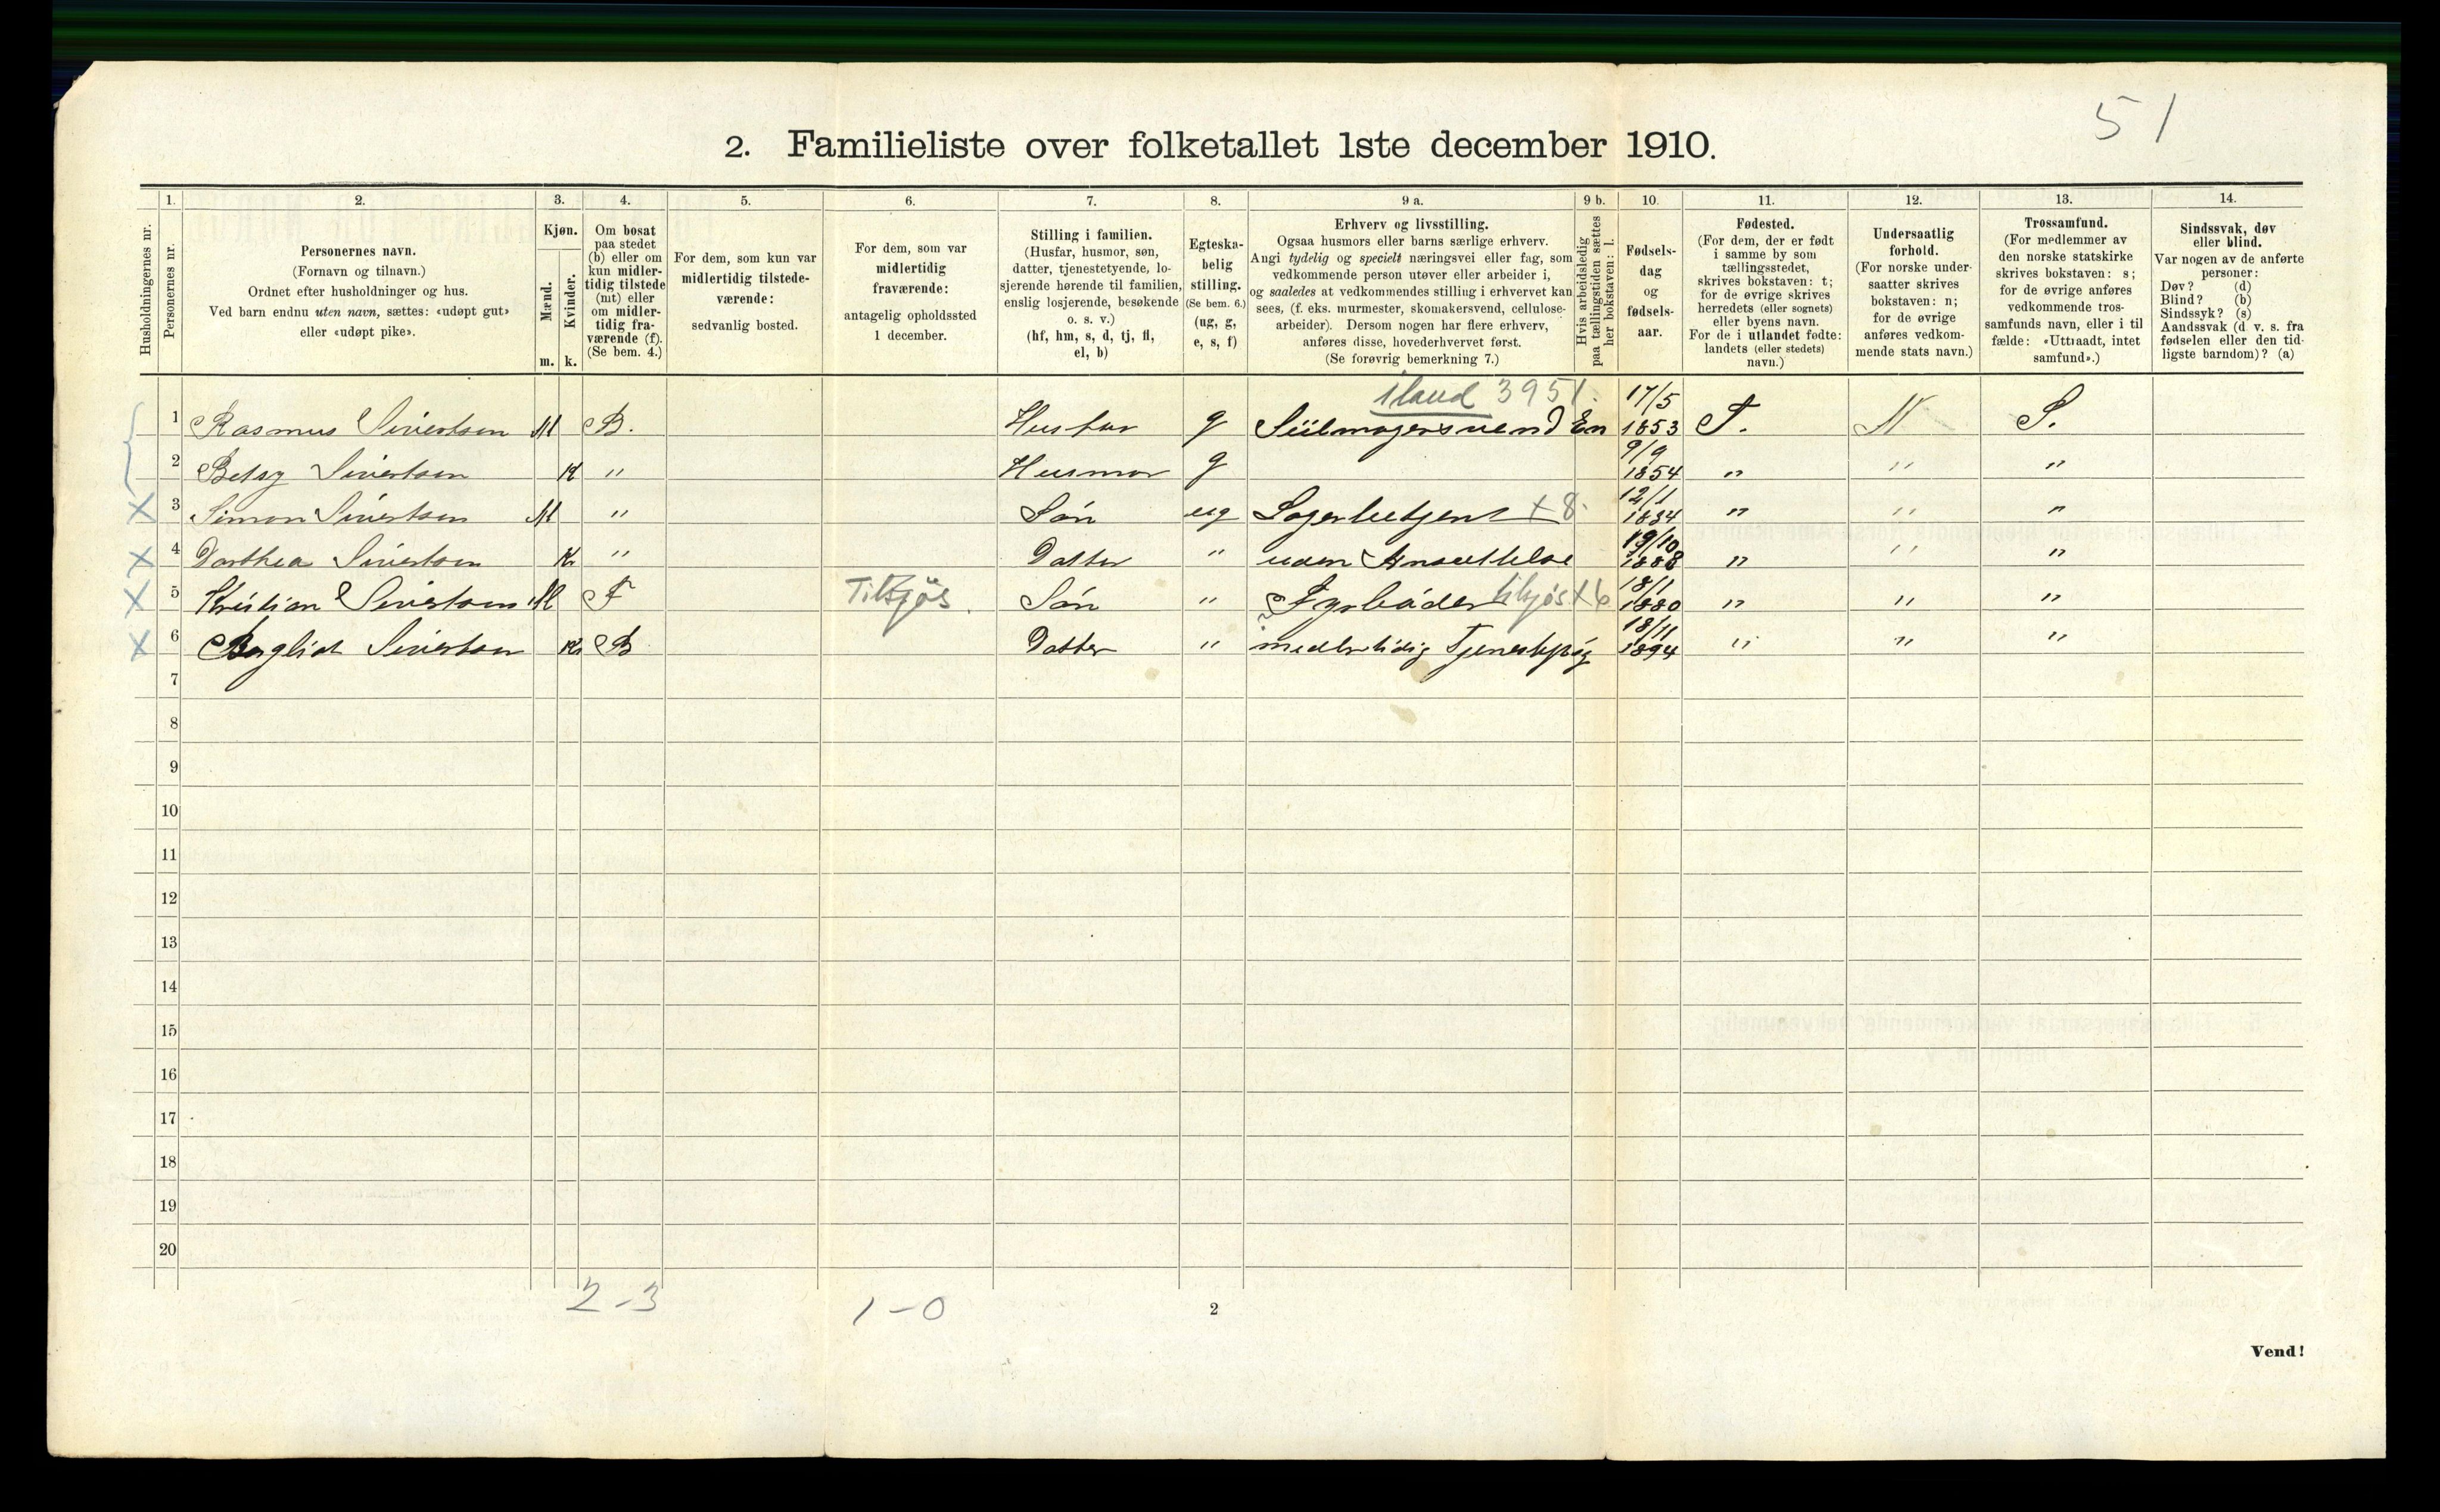 51
2. Familieliste over folketallet 1ste december 1910.
Husholdningernes nr.
1.
Personernes nr.
2.
Personernes navn.
(Fornavn og tilnavn.)
Ordnet efter husholdninger og hus.
Ved barn endnu uten navn, sættes: «udøpt gut»
eller «udøpt pike».
3.
Kjøn.
Mænd.
m.
Kvinder.
k.
4.
Om bosat
paa stedet
(b) eller om
kun midler-
tidig tilstede
(mt) eller
om midler-
tidig fra-
værende (f).
(Se bem. 4.)
5.
For dem, som kun var
midlertidig tilstede-
værende:
sedvanlig bosted.
6.
For dem, som var
midlertidig
fraværende:
antagelig opholdssted
1 december.
7.
Stilling i familien.
(Husfar, husmor, søn,
datter, tjenestetyende, lo-
sjerende hørende til familien,
enslig losjerende, besøkende
o. s. v.)
(hf, hm, s, d, tj, fl,
el, b)
8.
Egteska-
belig
stilling.
(Se bem. 6.)
(ug, g,
e, s, f)
9 a.
Erhverv og livsstilling.
Ogsaa husmors eller barns særlige erhverv.
Angi tydelig og specielt næringsvei eller fag, som
vedkommende person utøver eller arbeider i,
og saaledes at vedkommendes stilling i erhvervet kan
sees, (f. eks. murmester, skomakersvend, cellulose-
arbeider). Dersom nogen har flere erhverv,
anføres disse, hovederhvervet først.
(Se forøvrig bemerkning 7.)
9 b.
Hvis arbeidsledig
paa tællingstiden sættes
her bokstaven: l.
10.
Fødsels-
dag
og
fødsels-
aar.
11.
Fødested.
(For dem, der er født
i samme by som
tællingsstedet,
skrives bokstaven: t;
for de øvrige skrives
herredets (eller sognets)
eller byens navn.
For de i utlandet fødte:
landets (eller stedets)
navn.)
12.
Undersaatlig
forhold.
(For norske under-
saatter skrives
bokstaven: n;
for de øvrige
anføres vedkom-
mende stats navn.)
13.
Trossamfund.
(For medlemmer av
den norske statskirke
skrives bokstaven: s;
for de øvrige anføres
vedkommende tros-
samfunds navn, eller i til
fælde: «Uttraadt, intet
samfund».)
14.
Sindssvak, døv
eller blind.
Var nogen av de anførte
personer:
Døv? (d)
Blind? (b)
Sindssyk? (s)
Aandssvak (d. v. s. fra
fødselen eller den tid-
ligste barndom)? (a)
iland 3951.
1 Rasmus Sivertsen M B. Husfar g Seilmagersvend En 17/5 1853 T. N S.
2 Betsy Sivertsen K " Husmor g 9/9 1854 " " "
X 3 Simon Sivertsen M " Sön ug Lagerbetjent + 8. 12/1 1884 " " "
X 4 Dorthea Sivertsen K " Datter " uden Ansettelse 19/10 1888 " " "
X 5 Kristian Sivertsen M F Tilsjös. Sön " Fyrböder tilsjös + 6 18/1 1880 " " "
X 6 Bergliot Sivertsen K B Datter " midlertidig Tjenestepig 18/11 1894 " " "
7
8
9
10
11
12
13
14
15
16
17
18
19
20
2-3
1-0
2
Vend!